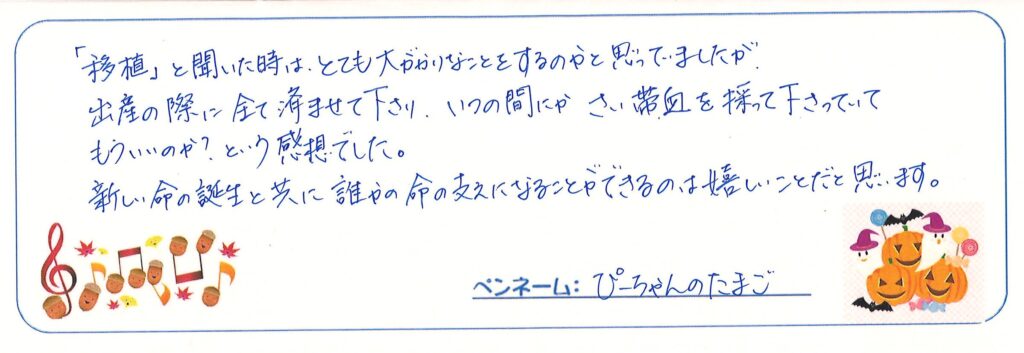 「移植」と聞いた時は、とても大がかりなことをするのかと思っていましたが、
出産の際に全て済ませて下さり、いつの間にか さい帯血を採って下さっていて
もういいのか？という感想でした。
新しい命の誕生と共に誰かの命の支えになることができるのは嬉しいことだと思います。
ペンネーム：ぴーちゃんのたまご